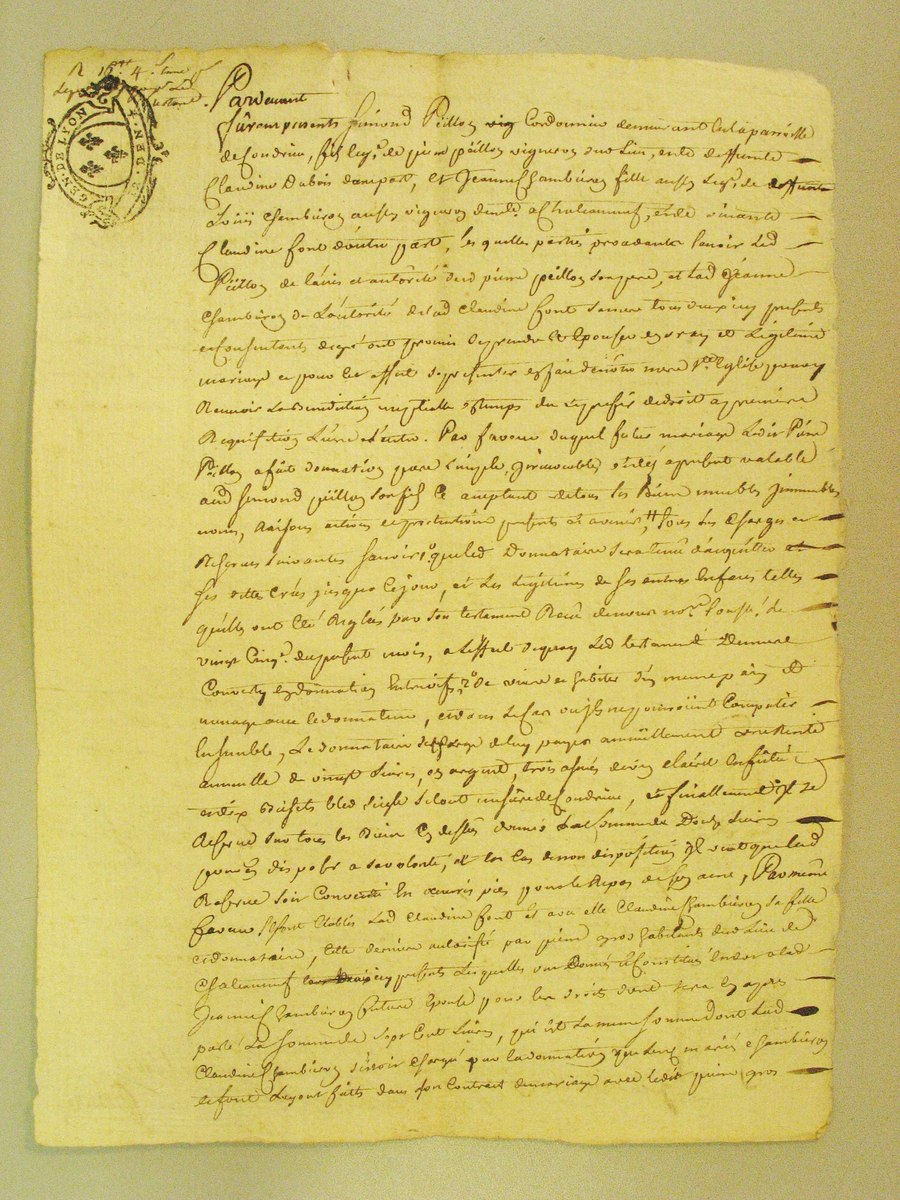 GEN. DE LYON
Pardevant
furent presents Simond Peillon Cordonnier demeurant en la ville
de Condrieu, fils leg.e de pierre peillon vigneron dud. Lieu, et de deffunte
Claudine Dubois d'une part, et Jeanne Chambeiron fille aussy Leg.e de deffunt
Louis Chambeiron aussy vigneron a Chateauneuf, et de vivante
Claudine font d'autre part, lesquelles parties procedantes savoir Led.
Peillon de l'avis et autorité dud. pierre peillon son pere, et Lad. Jeanne
Chambeiron de L'autorité de Lad. Claudine font sa mere tous deux icy presents
et Consentants de gré ont promis de prendre et Epouser en vray et Legitime
mariage et pour cet effet se presenter en face de notre mere S.te Eglise pour y
Recevoir La Benediction nuptialle a premiere
Requisition L'une et L'autre. Par faveur duquel futur mariage Ledit Pierre
Peillon a fait donnation pure simple, jrrevocable et a present valable
aud. Simond peillon son fils ce acceptant de tous ses Biens meubles jmmeubles
noms, Raisons actions et pretentions presents et avenir, sous Les Charges et
Reserves suivantes savoir 1.o que led. Donnataire sera tenu d'acquitter
ses dettes Créés jusques à ce jour, et Les Legitimes de ses autres Enfants telles
qu'elles ont été Reglées par son testament Recu de nous no.re soussé. Le
vingt Cinq.e du present mois, a L'effet de quoy Led. testament Demeure
Converty en donnation Entrevifs, 2.o de vivre et habiter a même pain et
menage avec le donnateur, et dans Le Cas ou ils ne pourroient Compatir
Ensemble, Le donnataire de luy payer annuellement
annuelle de vingt Livres, en argent, trois asnées de vin clairet
et dix Bichets bled seigle mesure de Condrieu, et finallement il se
Reserve sur tous les Biens Cy dessus donnés La Somme de Livres
pour en disposer a sa volonté, et en Cas de non disposition, il veut que lad.
Reserve soit Convertie En œuvres pies pour le Repos de son ame, Par meme
faveur Lad. Claudine font et avec elle Claudine Chambeiron sa fille
et donnataire, cette derniere autorisée par pierre gros habitants dud. Lieu de
Chateauneuf icy presents Lesquelles ont Donné et Constitué En dot a lad.
Jeanne Chambeiron future Epouse pour les droits dont sera cy apres
parlé La Somme de sept Cent Livres, qui est La meme Somme dont Lad.
Claudine Chambeiron se voit Chargé par La donnation que Les mariés Chambeiron
et font Luy ont faitte dans son Contrat de mariage avec ledit pierre gros